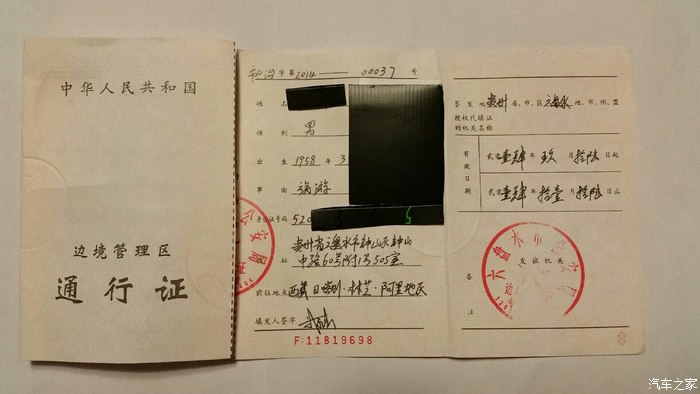 中华人民共和国
边境管理区
通行证
字第2014—00037号
姓
性别 男
出生 1958年3
事由 旅游
身份证号码 520
贵州省六盘水市钟山区钟山
址 中路60号附1号505室
前往地点 西藏日喀则·林芝·阿里地区
填发人签字
F:11819698
签发地 贵州 省、市、区 六盘水 地、市、州、盟
授权代填证
的机关名称
有效日期
贰零壹肆年 玖月拾陆日起
贰零壹肆年 拾壹月拾陆日止
发证机关
备注
六盘水市
汽车之家